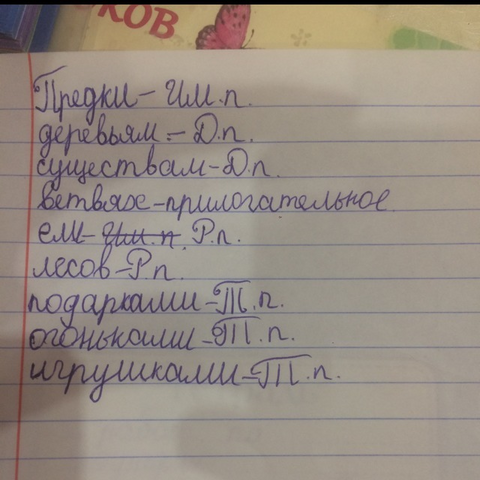 КОВ
Предки – Им.п.
деревьям – Д.п.
существам – Д.п.
ветвях – прилогательное
ели – Им.п. Р.п.
лесов – Р.п.
подарками – Т.п.
огоньками – Т.п.
игрушками – Т.п.